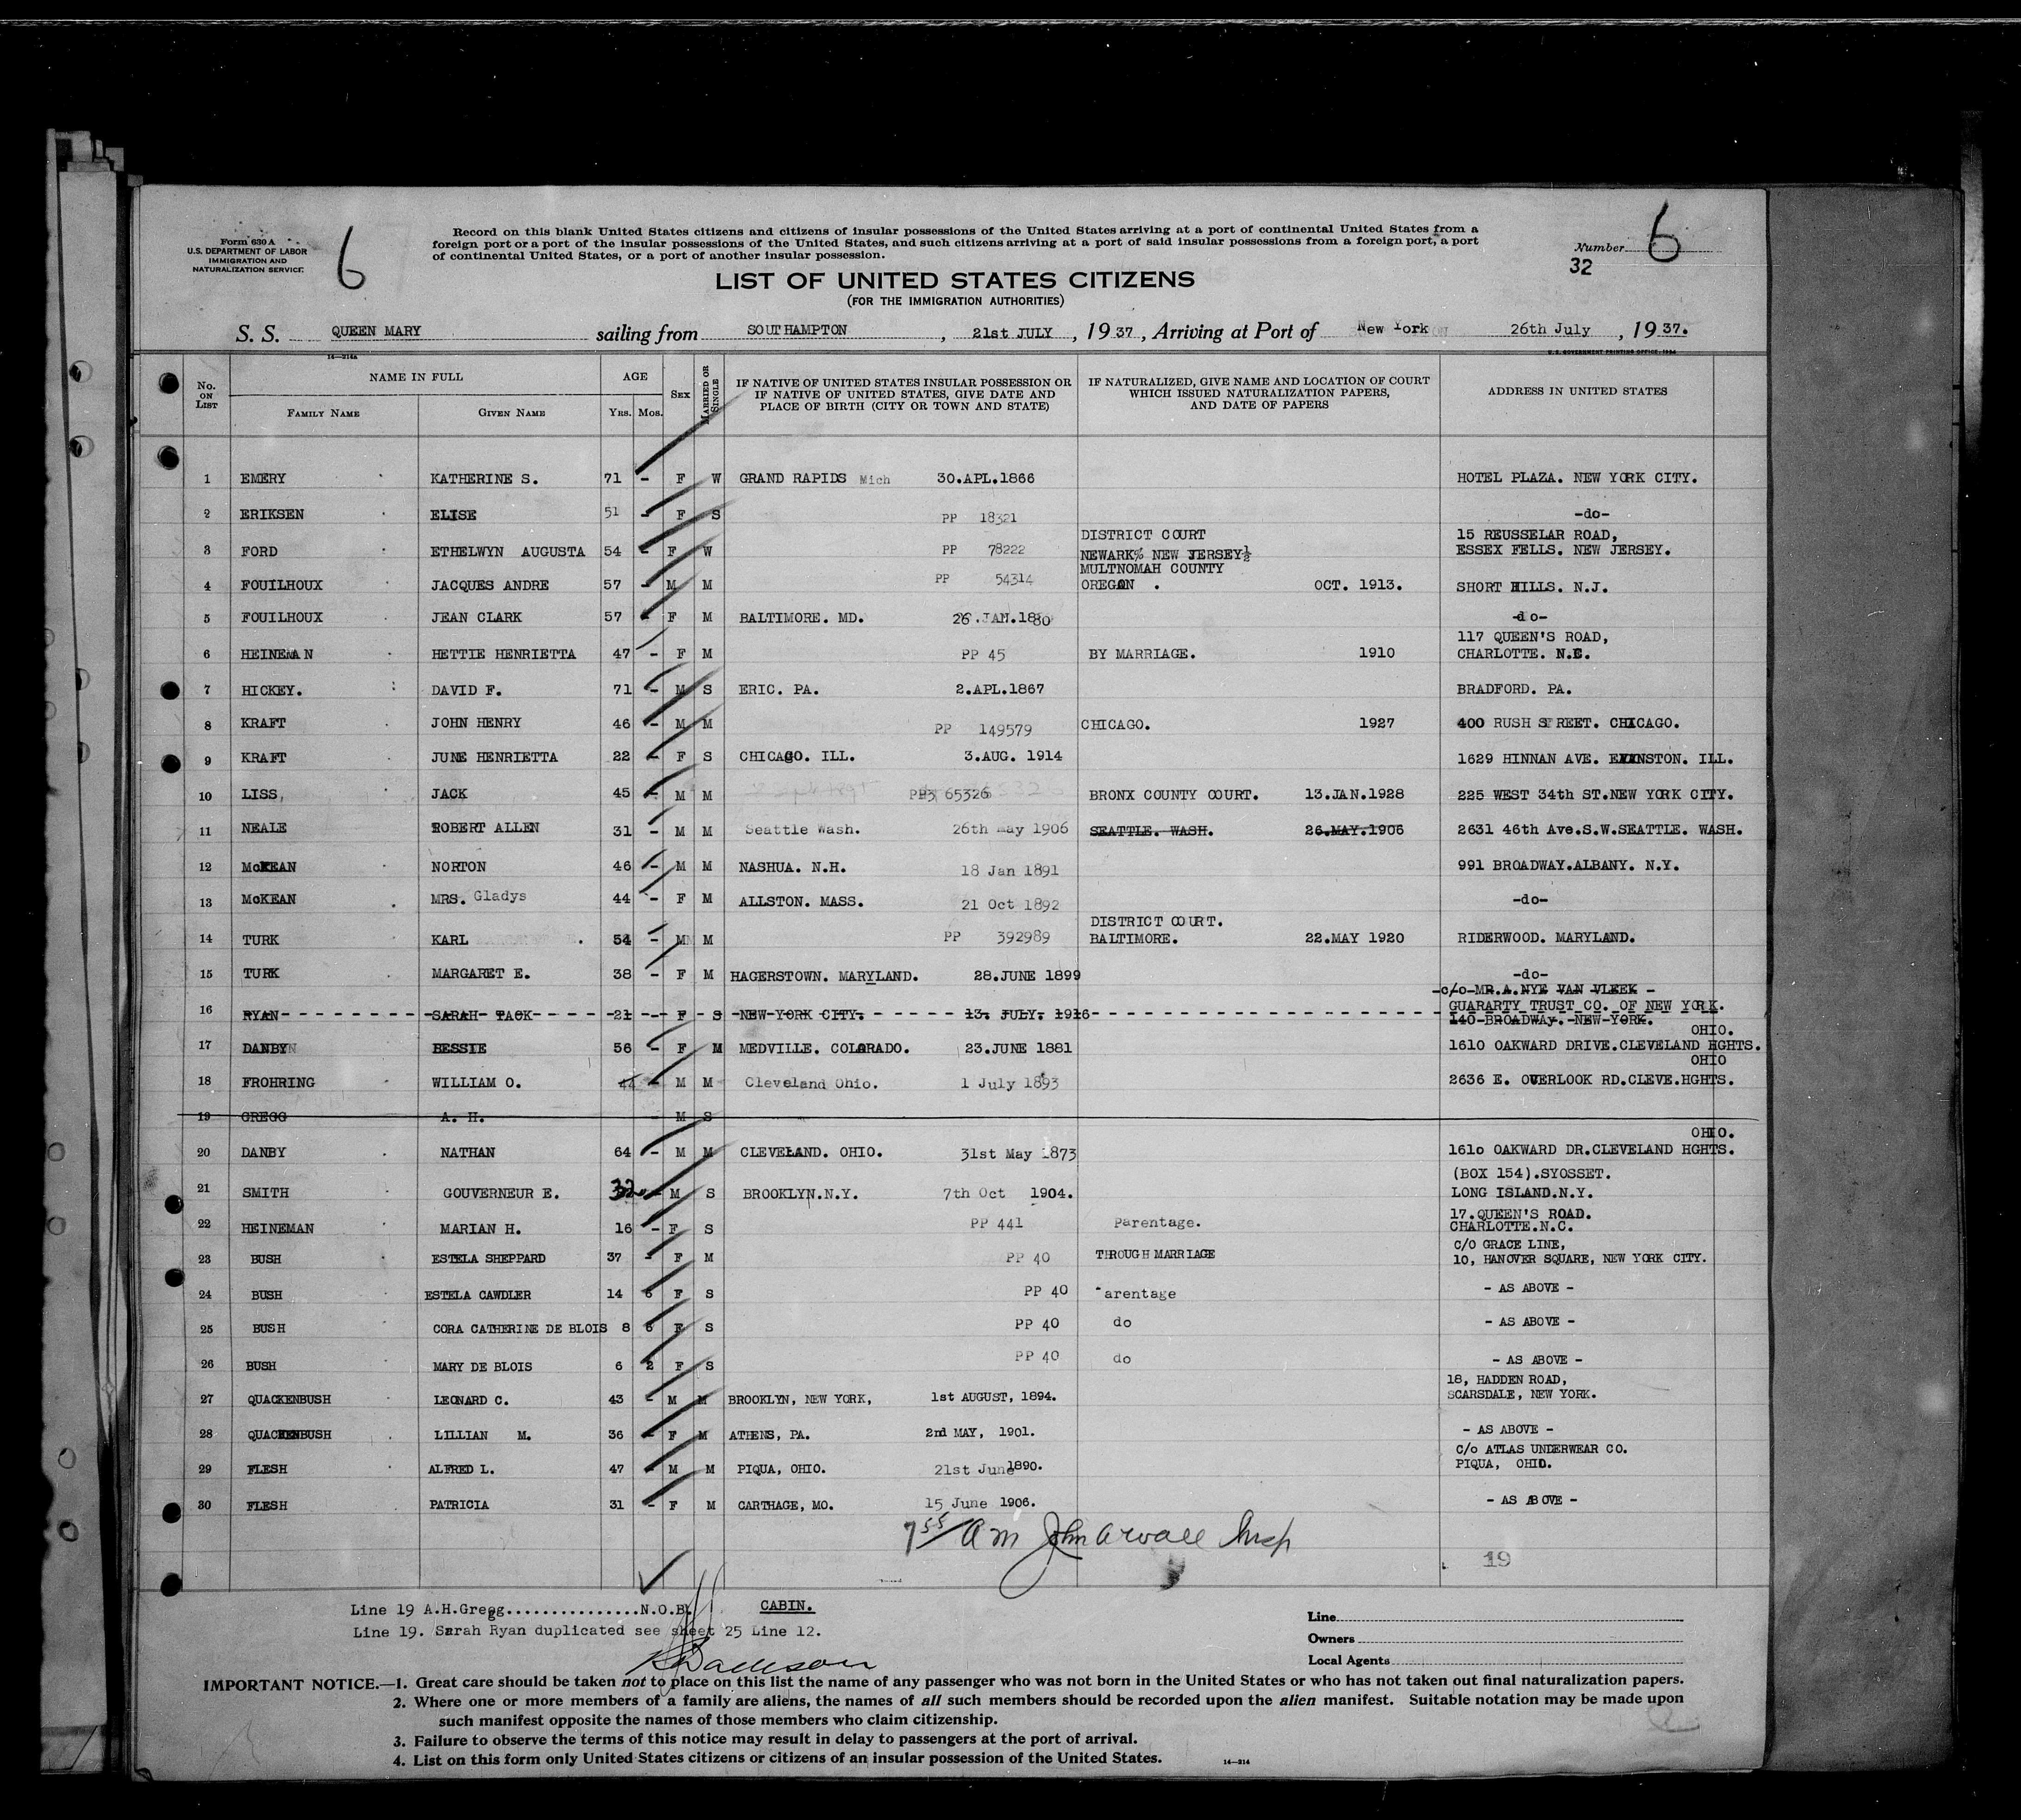 Form 630 A
U.S. DEPARTMENT OF LABOR
IMMIGRATION AND
NATURALIZATION SERVICE
6
Record on this blank United States citizens and citizens of insular possessions of the United States arriving at a port of continental United States from a
foreign port or a port of the insular possessions of the United States, and such citizens arriving at a port of said insular possessions from a foreign port, a port
of continental United States, or a port of another insular possession.
Number 6
32
LIST OF UNITED STATES CITIZENS
(FOR THE IMMIGRATION AUTHORITIES)
S. S. QUEEN MARY sailing from SOUTHAMPTON, 21st JULY, 1937, Arriving at Port of New York 26th July, 1937.
14—214A
U.S. GOVERNMENT PRINTING OFFICE: 1934
No. ON LIST NAME IN FULL FAMILY NAME GIVEN NAME AGE YRS. MOS. SEX MARRIED OR SINGLE IF NATIVE OF UNITED STATES INSULAR POSSESSION OR IF NATIVE OF UNITED STATES, GIVE DATE AND PLACE OF BIRTH (CITY OR TOWN AND STATE) IF NATURALIZED, GIVE NAME AND LOCATION OF COURT WHICH ISSUED NATURALIZATION PAPERS, AND DATE OF PAPERS ADDRESS IN UNITED STATES
1 EMERY KATHERINE S. 71 - F W GRAND RAPIDS Mich 30.APL.1866 HOTEL PLAZA. NEW YORK CITY.
2 ERIKSEN ELISE 51 - F S PP 18321 -do-
3 FORD ETHELWYN AUGUSTA 54 - F W PP 78222 DISTRICT COURT NEWARK% NEW JERSEY½ 15 REUSSELAR ROAD, ESSEX FELLS. NEW JERSEY.
4 FOUILHOUX JACQUES ANDRE 57 - M M PP 54314 MULTNOMAH COUNTY OREGON . OCT. 1913. SHORT HILLS. N.J.
5 FOUILHOUX JEAN CLARK 57 - F M BALTIMORE. MD. 26.JAN.1880 -do-
6 HEINEMAN HETTIE HENRIETTA 47 - F M PP 45 BY MARRIAGE. 1910 117 QUEEN'S ROAD, CHARLOTTE. N.C.
7 HICKEY. DAVID F. 71 - M S ERIC. PA. 2.APL.1867 BRADFORD. PA.
8 KRAFT JOHN HENRY 46 - M M PP 149579 CHICAGO. 1927 400 RUSH STREET. CHICAGO.
9 KRAFT JUNE HENRIETTA 22 - F S CHICAGO. ILL. 3.AUG. 1914 1629 HINNAN AVE. EVANSTON. ILL.
10 LISS, JACK 45 - M M PP3 65326 BRONX COUNTY COURT. 13.JAN.1928 225 WEST 34th ST.NEW YORK CITY.
11 NEALE ROBERT ALLEN 31 - M M Seattle Wash. 26th may 1906 SEATTLE. WASH. 26.MAY.1906 2631 46th Ave.S.W.SEATTLE. WASH.
12 McKEAN NORTON 46 - M M NASHUA. N.H. 18 Jan 1891 991 BROADWAY.ALBANY. N.Y.
13 McKEAN MRS. Gladys 44 - F M ALLSTON. MASS. 21 Oct 1892 -do-
14 TURK KARL . 54 - M M PP 392989 DISTRICT COURT. BALTIMORE. 22.MAY 1920 RIDERWOOD. MARYLAND.
15 TURK MARGARET E. 38 - F M HAGERSTOWN. MARYLAND. 28.JUNE 1899 -do-
16 RYAN SARAH TACK 21 - F S NEW YORK CITY. 13. JULY. 1916 c/o MR.A.NYE VAN VLEEK - GUARARTY TRUST CO. OF NEW YORK. 140 BROADWAy. NEW YORK.
17 DANBY BESSIE 56 - F M MEDVILLE. COLORADO. 23.JUNE 1881 1610 OAKWARD DRIVE.CLEVELAND HGHTS. OHIO.
18 FROHRING WILLIAM O. 44 - M M Cleveland Ohio. 1 July 1893 2636 E. OVERLOOK RD.CLEVE.HGHTS. OHIO
19 GREGG A. H. - M S
20 DANBY NATHAN 64 - M M CLEVELAND. OHIO. 31st May 1873 161o OAKWARD DR.CLEVELAND HGHTS. OHIO.
21 SMITH GOUVERNEUR E. 32 - M S BROOKLYN.N.Y. 7th Oct 1904. (BOX 154).SYOSSET. LONG ISLAND.N.Y.
22 HEINEMAN MARIAN H. 16 - F S PP 441 Parentage. 17.QUEEN'S ROAD. CHARLOTTE.N.C.
23 BUSH ESTELA SHEPPARD 37 - F M PP 40 THROUGH MARRIAGE C/O GRACE LINE, 10, HANOVER SQUARE, NEW YORK CITY.
24 BUSH ESTELA CAWDLER 14 6 F S PP 40 arentage - AS ABOVE -
25 BUSH CORA CATHERINE DE BLOIS 8 6 F S PP 40 do - AS ABOVE -
26 BUSH MARY DE BLOIS 6 2 F S PP 40 do - AS ABOVE -
27 QUACKENBUSH LEONARD C. 43 - M M BROOKLYN, NEW YORK, 1st AUGUST, 1894. 18, HADDEN ROAD, SCARSDALE, NEW YORK.
28 QUACKENBUSH LILLIAN M. 36 - F M ATHENS, PA. 2nd MAY, 1901. - AS ABOVE -
29 FLESH ALFRED L. 47 - M M PIQUA, OHIO. 21st June 1890. C/o ATLAS UNDERWEAR CO. PIQUA, OHIO.
30 FLESH PATRICIA 31 - F M CARTHAGE, MO. 15 June 1906. - AS ABOVE -
7 55/ AM John Insp
19
Line 19 A.H.Gregg...............N.O.B. CABIN.
Line 19. Sarah Ryan duplicated see sheet 25 Line 12.
Line
Owners
Local Agents
IMPORTANT NOTICE.—1. Great care should be taken not to place on this list the name of any passenger who was not born in the United States or who has not taken out final naturalization papers.
2. Where one or more members of a family are aliens, the names of all such members should be recorded upon the alien manifest. Suitable notation may be made upon
such manifest opposite the names of those members who claim citizenship.
3. Failure to observe the terms of this notice may result in delay to passengers at the port of arrival.
4. List on this form only United States citizens or citizens of an insular possession of the United States.
14—214